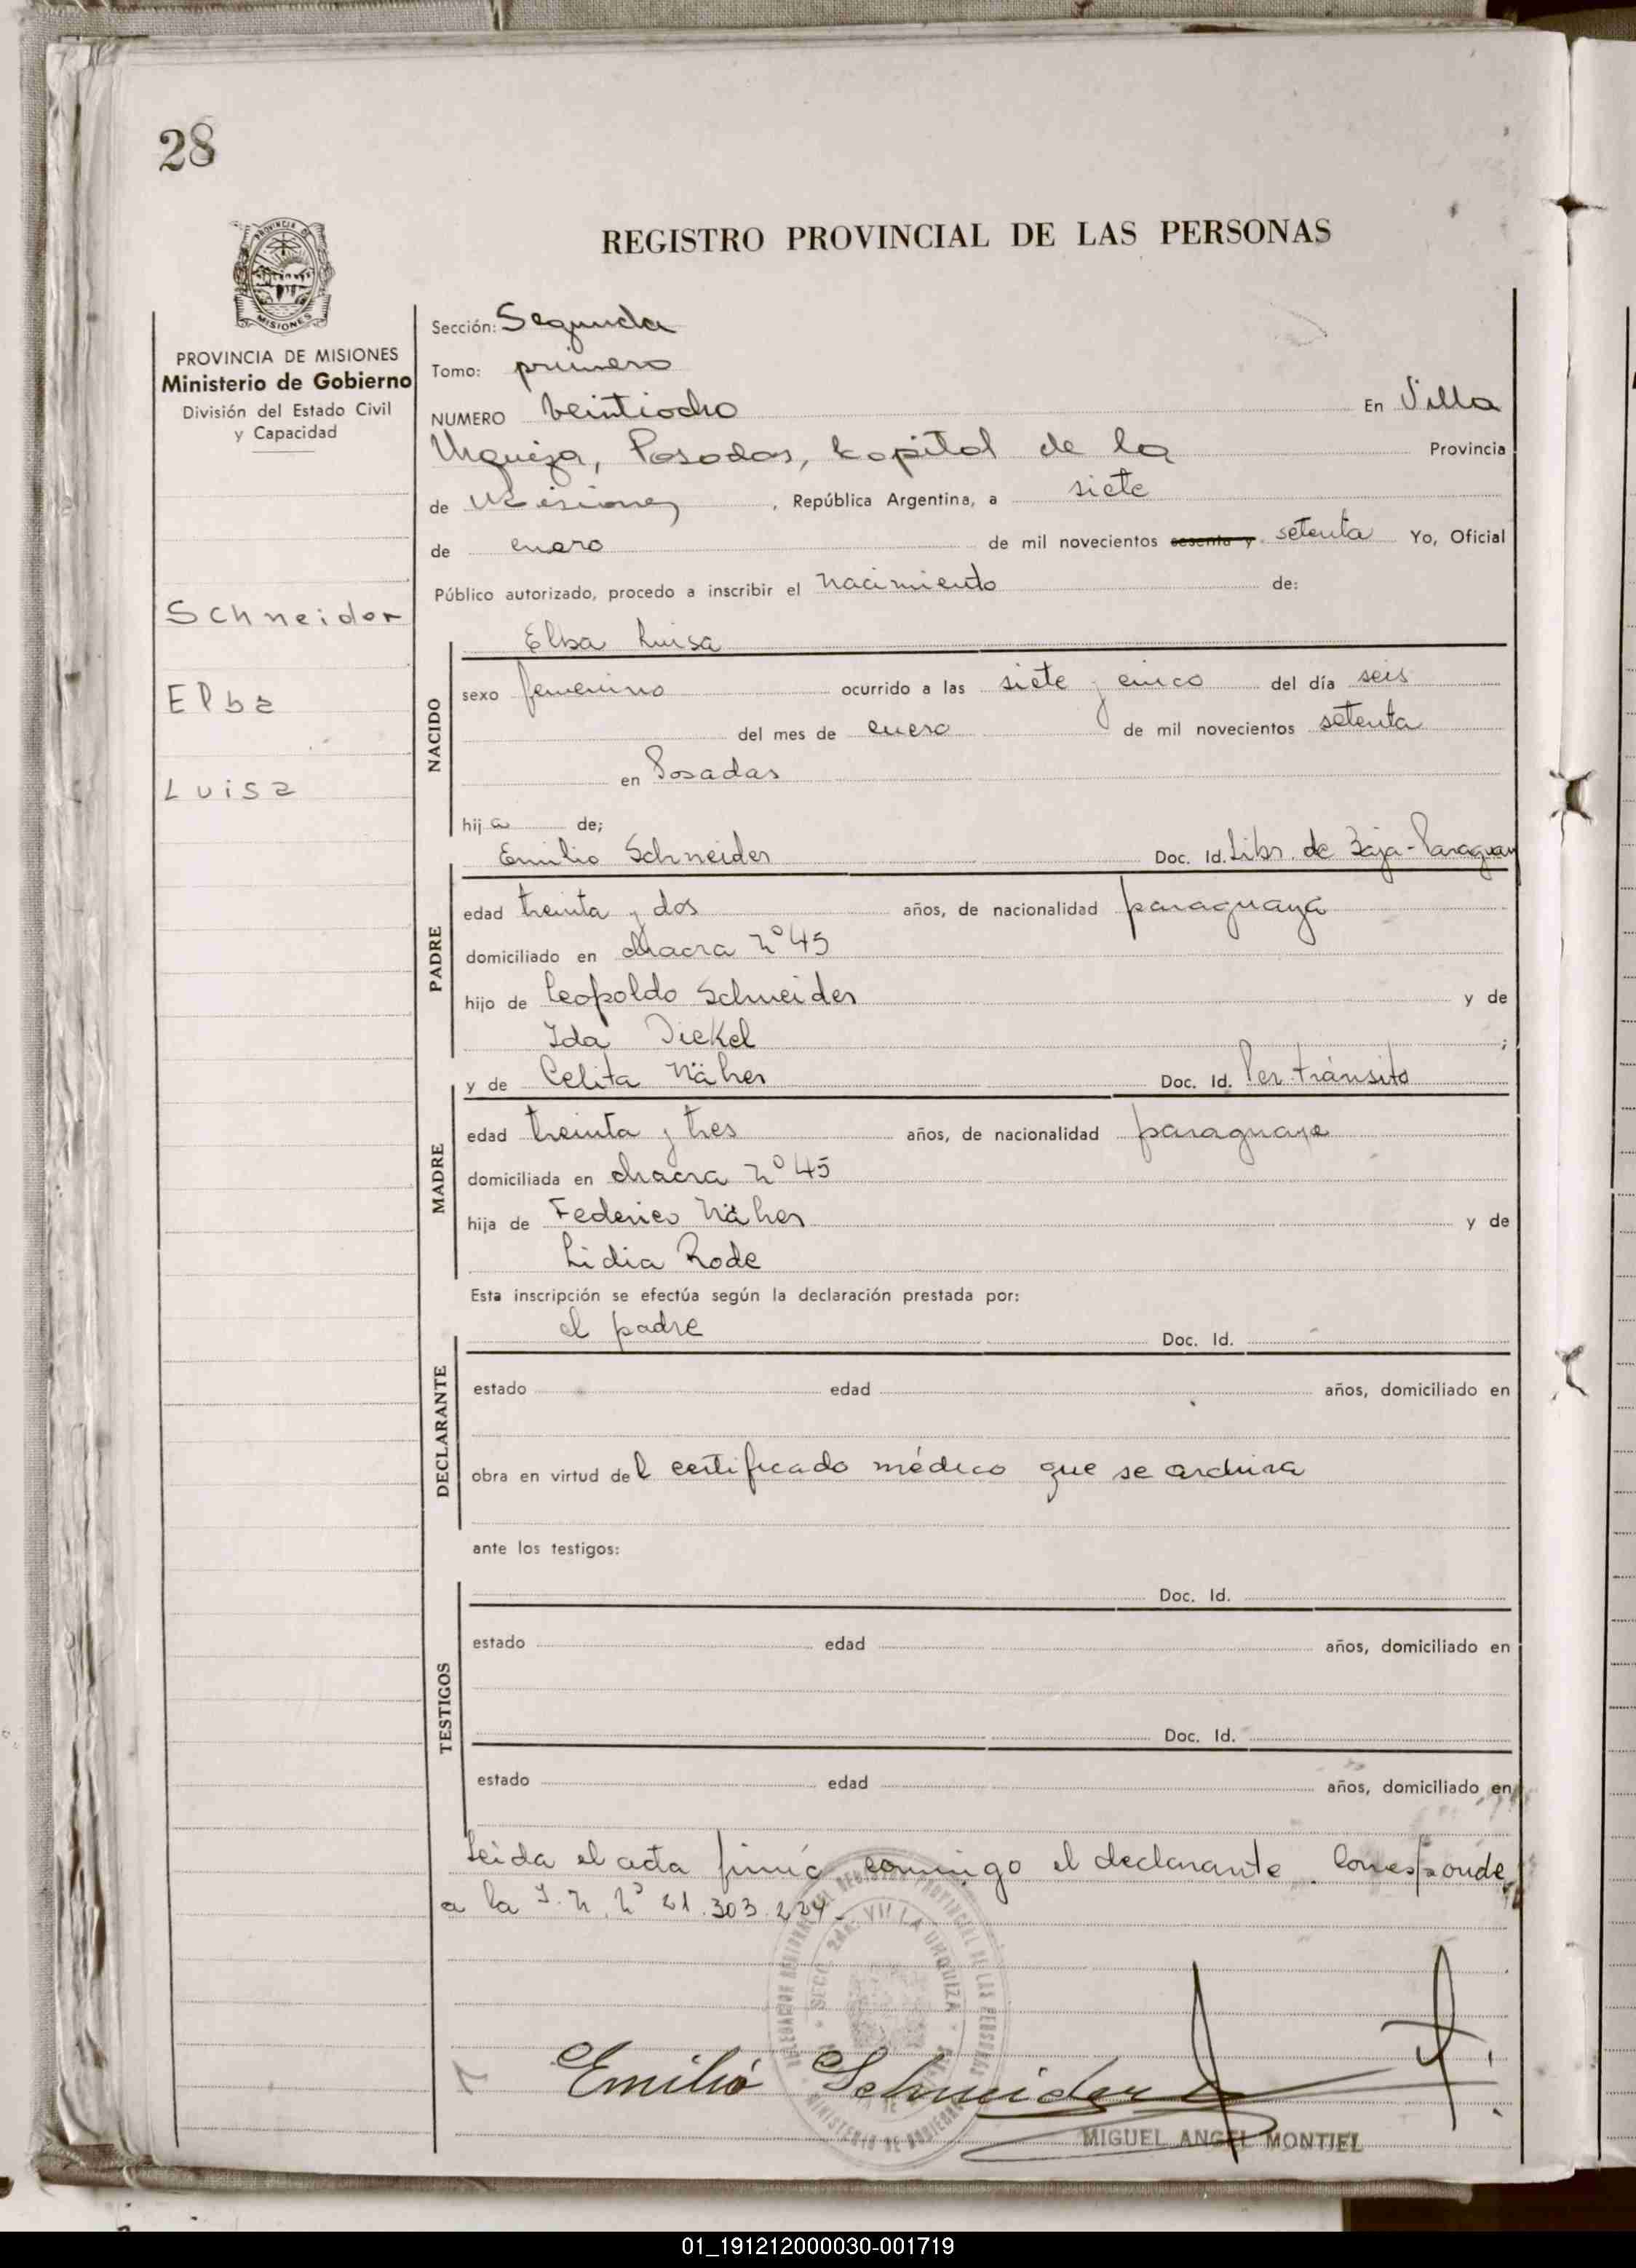 28
PROVINCIA DE
MISIONES
REGISTRO PROVINCIAL DE LAS PERSONAS
PROVINCIA DE MISIONES
Ministerio de Gobierno
División del Estado Civil
y Capacidad
Schneider
Elba
Luisa
Sección: Segunda
Tomo: primero
NUMERO veintiocho En Villa
Urquiza, Posadas, capital de la Provincia
de Misiones, República Argentina, a siete
de enero de mil novecientos sesenta y setenta Yo, Oficial
Público autorizado, procedo a inscribir el nacimiento de:
NACIDO
Elba Luisa
sexo femenino ocurrido a las siete y cinco del día seis
del mes de enero de mil novecientos setenta
en Posadas
hija de;
PADRE
Emilio Schneider Doc. Id. Libr. de Baja-Paraguay
edad treinta y dos años, de nacionalidad paraguaya
domiciliado en chacra nº 45
hijo de Leopoldo Schneider y de
Ida Dickel ;
MADRE
y de Celita Näher Doc. Id. Per. tránsito
edad treinta y tres años, de nacionalidad paraguaya
domiciliada en chacra nº 45
hija de Federico Näher y de
Lidia Rode
Esta inscripción se efectúa según la declaración prestada por:
DECLARANTE
el padre Doc. Id.
estado edad años, domiciliado en
obra en virtud del certificado médico que se archiva
ante los testigos:
TESTIGOS
Doc. Id.
estado edad años, domiciliado en
Doc. Id.
estado edad años, domiciliado en
Leida el acta firmó conmigo el declarante. Corresponde
a la I. N. Nº 21.303.224.-
SECC. 2da. VILLA URQUIZA
MINISTERIO DE GOBIERNO
Emilio Schneider
MIGUEL ANGEL MONTIEL
01_191212000030-001719